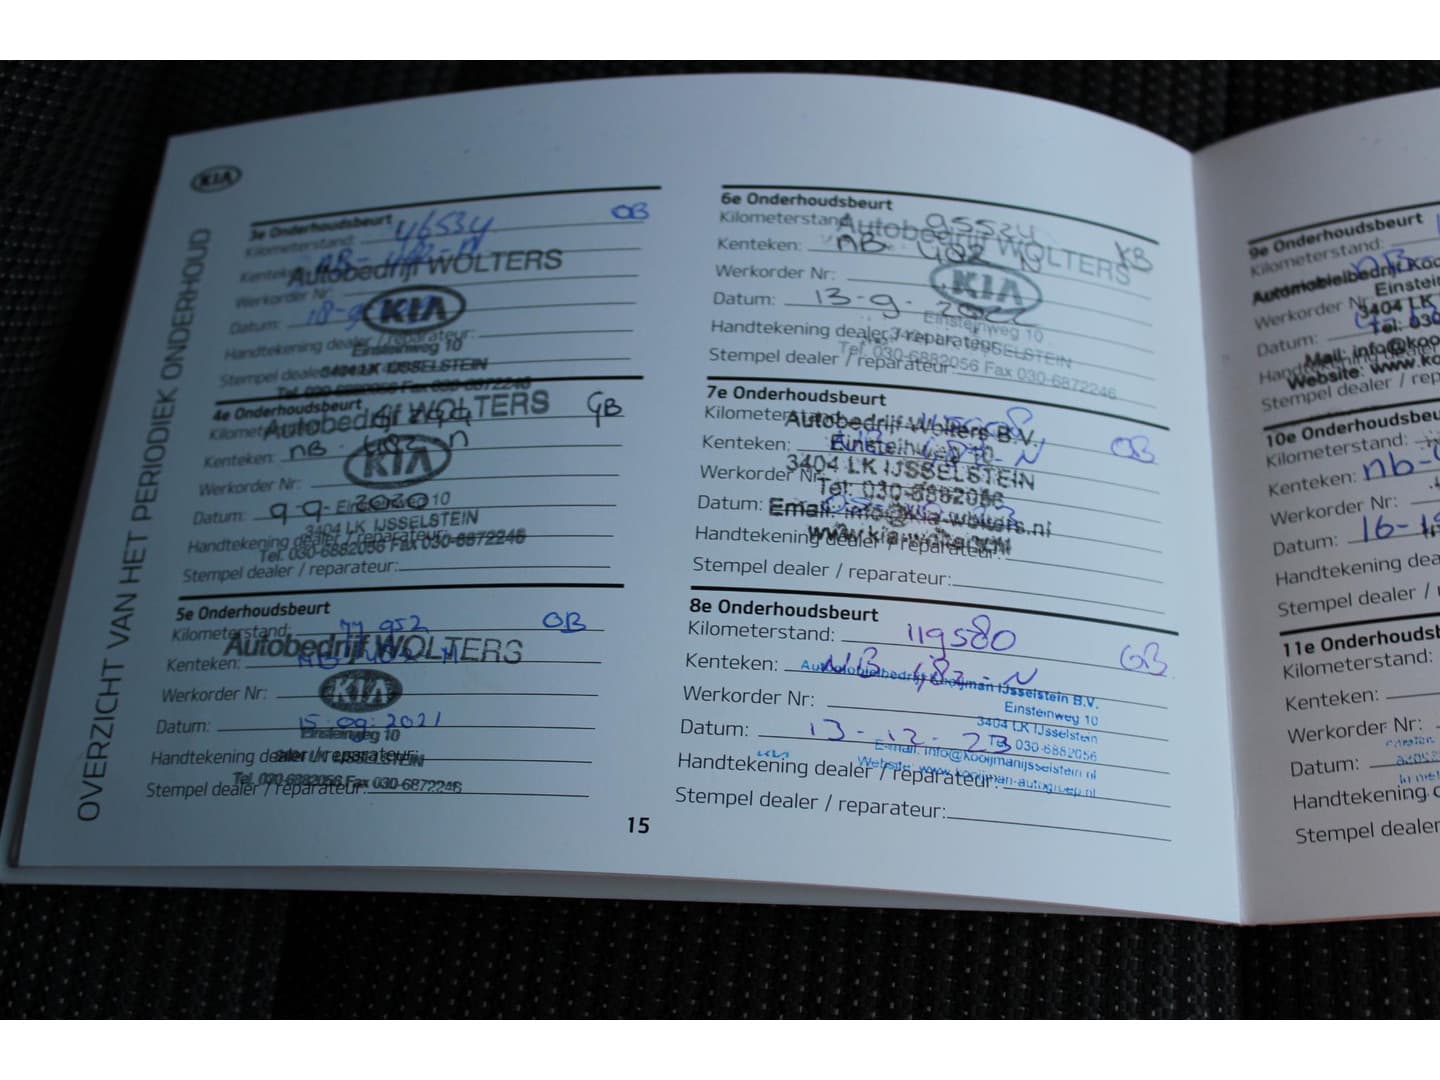 KIA
OVERZICHT VAN HET PERIODIEK ONDERHOUD
3e Onderhoudsbeurt
Kilometerstand: 46534 OB
Kenteken: NB-482-N
Autobedrijf WOLTERS
Werkorder Nr:
KIA
Datum: 18-9
Handtekening dealer / reparateur:
Einsteinweg 10
Stempel dealer
3404 LK IJSSELSTEIN
Tel. 030-6882056 Fax 030-6872246
4e Onderhoudsbeurt GB
Autobedrijf WOLTERS
Kenteken: NB-482 N
KIA
Werkorder Nr:
Datum: 9-9-2020
Einsteinweg 10
3404 LK IJSSELSTEIN
Handtekening dealer / reparateur:
Tel. 030-6882056 Fax 030-6872246
Stempel dealer / reparateur:
5e Onderhoudsbeurt
Kilometerstand: 77 952 OB
Autobedrijf WOLTERS
Kenteken: NB 482 N
Werkorder Nr:
KIA
Datum: 15-09-2021
Einsteinweg 10
Handtekening dealer / reparateur:
3404 LK IJSSELSTEIN
Tel. 030-6882056 Fax 030-6872246
Stempel dealer / reparateur:
6e Onderhoudsbeurt
Kilometerstand: 95524
Autobedrijf WOLTERS
Kenteken: NB 482 N KB
Werkorder Nr:
KIA
Datum: 13-9-2022
Einsteinweg 10
Handtekening dealer / reparateur:
3404 LK IJSSELSTEIN
Tel. 030-6882056 Fax 030-6872246
Stempel dealer / reparateur:
7e Onderhoudsbeurt
Autobedrijf Wolters B.V.
Kenteken: OB
Einsteinweg 10
3404 LK IJSSELSTEIN
Werkorder Nr:
Tel: 030-6882056
Datum:
Email: info@kia-wolters.nl
www.kia-wolters.nl
Handtekening dealer / reparateur:
Stempel dealer / reparateur:
8e Onderhoudsbeurt
Kilometerstand: 119580
Kenteken: NB 482-N GB
Automobielbedrijf Kooijman IJsselstein B.V.
Werkorder Nr:
Einsteinweg 10
3404 LK IJsselstein
Datum: 13-12-23
Tel: 030-6882056
E-mail: info@kooijmanijsselstein.nl
Handtekening dealer / reparateur:
Website: www.kooijman-autogroep.nl
Stempel dealer / reparateur:
15
9e Onderhoudsbeurt
Kilometerstand:
Automobielbedrijf Koo
Einstein
Werkorder Nr
3404 LK
Tel: 030
Datum:
Mail: info@koo
Website: www.ko
Stempel dealer / rep
10e Onderhoudsbeu
Kilometerstand:
Kenteken: NB-4
Werkorder Nr:
Datum: 16-1
Handtekening dea
Stempel dealer /
11e Onderhoudsb
Kilometerstand:
Kenteken:
Werkorder Nr:
Datum:
Handtekening d
Stempel dealer